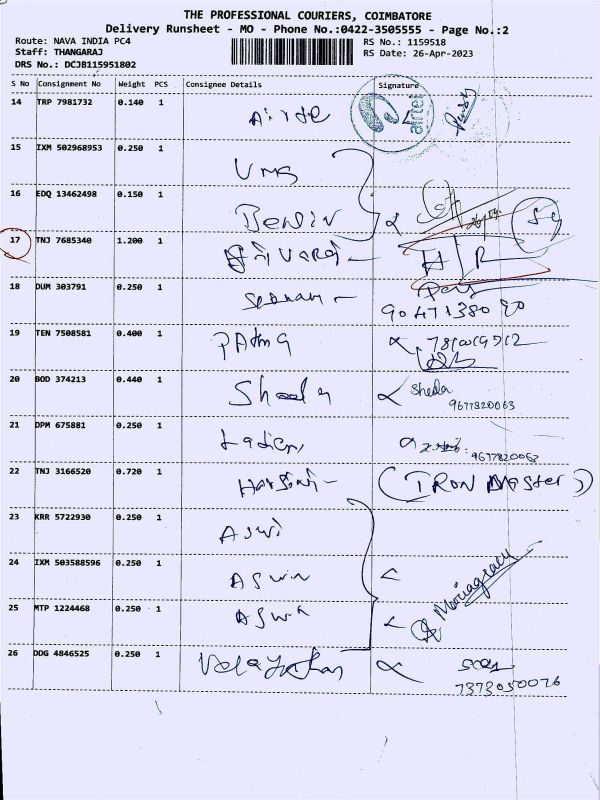 THE PROFESSIONAL COURIERS, COIMBATORE
Delivery Runsheet - MO - Phone No.:0422-3505555 - Page No.:2
Route: NAVA INDIA PC4
RS No.: 1159518
Staff: THANGARAJ
RS Date: 26-Apr-2023
DRS No.: DCJB115951802
S No Consignment No Weight PCS Consignee Details Signature
14 TRP 7981732 0.140 1
airtel
15 IXM 502968953 0.250 1
16 EDQ 13462498 0.150 1
17 TNJ 7685340 1.200 1
18 DUM 303791 0.250 1
19 TEN 7508581 0.400 1
20 BOD 374213 0.440 1 Sheela Sheela
9677820063
21 DPM 675881 0.250 1
9677820063
22 TNJ 3166520 0.720 1 (IRON Master)
23 KRR 5722930 0.250 1 Aswi
24 IXM 503588596 0.250 1 Aswin
25 MTP 1224468 0.250 1
26 DDG 4846525 0.250 1
7373050076